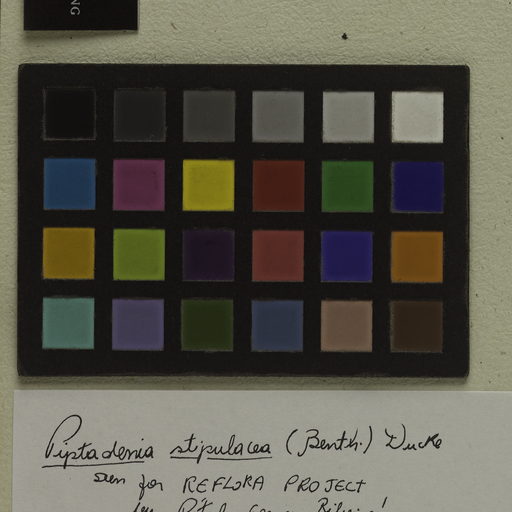 NG
Piptadenia stipulacea (Benth.) Ducke
seen for REFLORA PROJECT